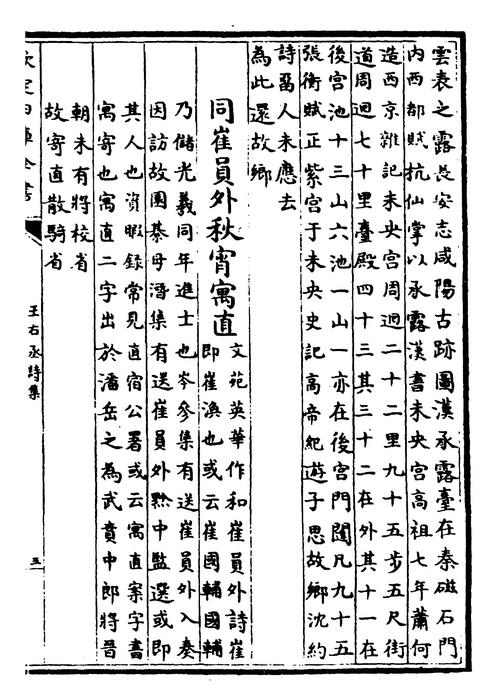 雲表之露長安志咸陽古跡圖漢承露臺在秦磁石門
内西都賦杭仙掌以承露漢書未央宫高祖七年蕭何
造西京雜記未央宫周迴二十二里九十五步五尺街
道周迴七十里臺殿四十三其三十二在外其十一在
後宫池十三山六池一山一亦在後宫門闥凡九十五
張衡賦正紫宫于未央史記高帝紀遊子思故鄉沈約
詩人未應去
為此還故鄉
同崔員外秋宵寓直
文苑英華作和崔員外詩崔
即崔渙也或云崔國輔國輔
乃儲光義同年進士也岑參集有送崔員外入奏
因訪故園綦毋潛集有送崔員外黔中監選或即
其人也資暇録常見直宿公署或云寓直案字書
寓寄也寓直二字出於潘岳之為武賁中郎將晉
朝未有將校省
故寄直散騎省
欽定四庫全書
王右丞詩集
五